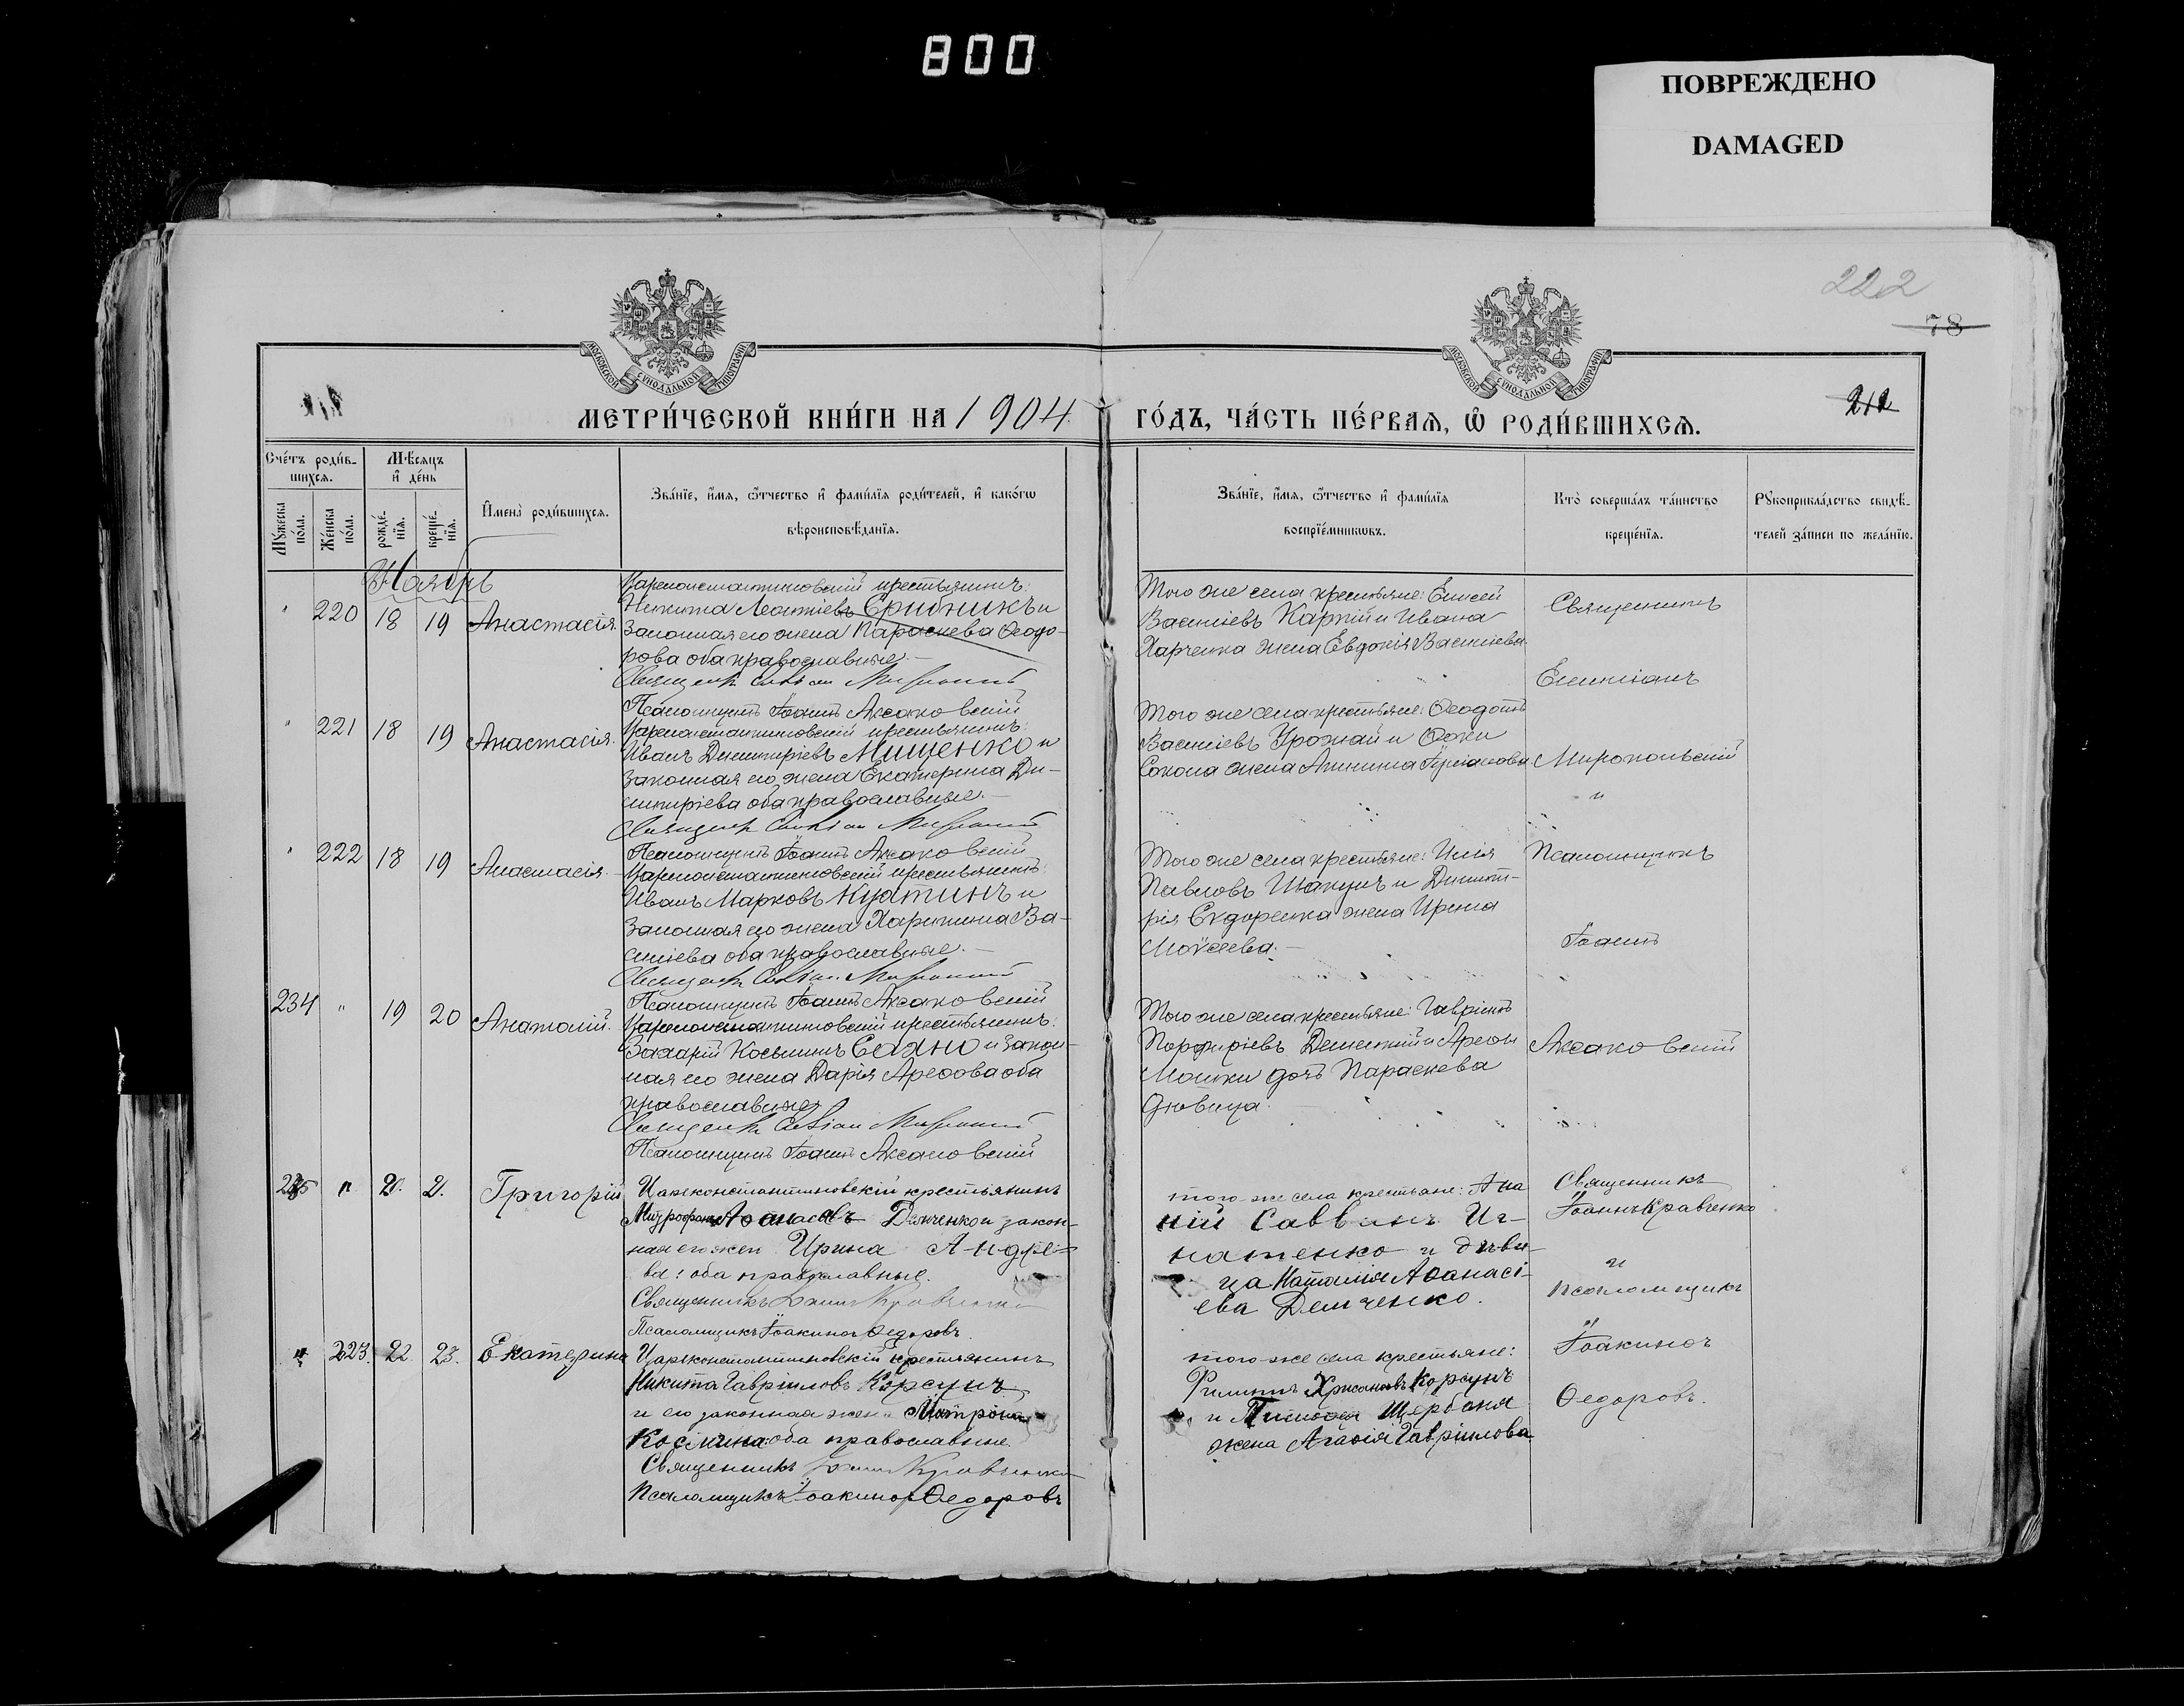 800
ПОВРЕЖДЕНО
DAMAGED
222
78
212
МОСКОВСКОЙ СѴНОДАЛЬНОЙ ТИПОГРАФІИ
МОСКОВСКОЙ СѴНОДАЛЬНОЙ ТИПОГРАФІИ
МЕТРИ́ЧЕСКОЙ КНИ́ГИ НА 1904
ГО́ДЪ, ЧА́СТЬ ПЕ́РВАѦ, Ѽ РОДИ́ВШИХСѦ.
Сче́тъ роди́в-
шихсѧ.
Мѣсѧцъ
и҆ де́нь
Мꙋ́жеска
по́ла.
Же́нска
по́ла.
рожде́-
нїѧ.
креще́-
нїѧ.
И҆мена̀ роди́вшихсѧ.
Зва́нїе, и҆́мѧ, ѻ҆́тчество и҆ фами́лїѧ роди́телей, и҆ како́гѡ
вѣроисповѣ́данїѧ.
Зва́нїе, и҆́мѧ, ѻ҆́тчество и҆ фами́лїѧ
воспрїе́мникѡвъ.
Кто̀ соверша́лъ та́инство
креще́нїѧ.
Рꙋкоприкла́дство свидѣ́-
телей за́писи по жела́нїю.
Ноябрь
" 220 18 19 Анастасія.
Цареконстантиновскій крестьянинъ:
Никита Леонтіевъ Срибникъ и
законная его жена Параскева Ѳеодо-
рова оба православные.—
Священникъ
Псаломщикъ Іоаннъ Аксаковскій
Того же села крестьяне: Елисей
Василіевъ Карпій и Ивана
Харченка жена Евдокія Василіева
Священникъ
" 221 18 19 Анастасія.
Цареконстантиновскій крестьянинъ:
Иванъ Димитріевъ Мищенко и
законная его жена Екатерина Ди-
митріева оба православные.—
Священникъ
Псаломщикъ Іоаннъ Аксаковскій
Того же села крестьяне: Ѳеодотъ
Василіевъ Урожай и Ѳоки
Сокола жена Акилина
Миропольскій
и
" 222 18 19 Анастасія.
Цареконстантиновскій крестьянинъ:
Иванъ Марковъ и
законная его жена Харитина Ва-
силіева оба православные.—
Священникъ
Псаломщикъ Іоаннъ Аксаковскій
Того же села крестьяне: Илія
Павловъ Шакунъ и Димит-
рія Сидоренка жена Ирина
Моисеева.—
Псаломщикъ
Іоаннъ
234 " 19 20 Анатолій.
Цареконстантиновскій крестьянинъ:
Захарій Космынъ Сахно и закон-
ная его жена Дарія Ареѳова оба
православные
Священникъ
Псаломщикъ Іоаннъ Аксаковскій
Того же села крестьяне: Гавріилъ
Порфиріевъ и Ареѳы
дочь Параскева
дѣвица.
Аксаковскій
235 " 21. 21. Григорій
Цареконстантиновскій крестьянинъ
Митрофанъ Аѳанасіевъ Демченко и закон-
ная его жена Ирина Андре=
ва: оба православные.
Священникъ Іоаннъ Кравченко
Псаломщикъ Іоакимъ Ѳедоровъ.
того-же села крестьяне: Ана
ній Саввинъ Иг-
натенко и дѣви-
ца Наталія Аѳанасі-
ева Демченко.
Священникъ
Іоаннъ Кравченко
и
псаломщикъ
" 223. 22. 23. Екатерина
Цареконстантиновскій крестьянинъ
Никита Гавріиловъ Корсунъ
и его законная жена Матрона
Космина: оба православные.
Священникъ Іоаннъ Кравченко
Псаломщикъ Іоакимъ Ѳедоровъ
того-же села крестьяне:
Филиппъ Хрисанѳовъ Корсунъ
и Тимоѳея Щербаня
жена Агаѳія Гавріилова.
Іоакимъ
Ѳедоровъ.